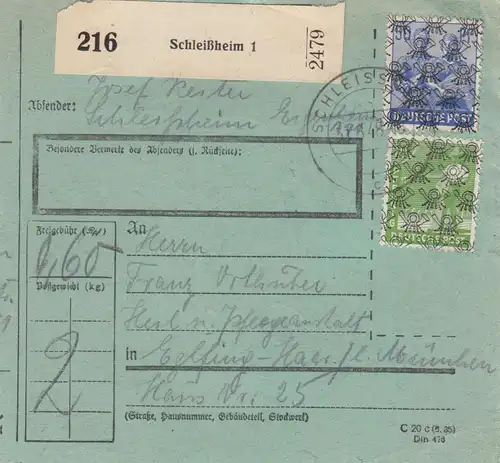 216 Schleißheim 1 2479
Absender: Josef
Schleissheim
SCHLEISSHEIM
DEUTSCHE POST
Besondere Vermerke des Absenders (s. Rückseite):
Freigebühr (Rℳ)
0,60
Postgewicht (kg)
2
An
Herrn
Franz Orthuber
Heil u. Pflegeanstalt
in Eglfing-Haar b. München
Haus Nr. 25
(Straße, Hausnummer, Gebäudeteil, Stockwerk)
C 20 c (6. 35)
Din 476